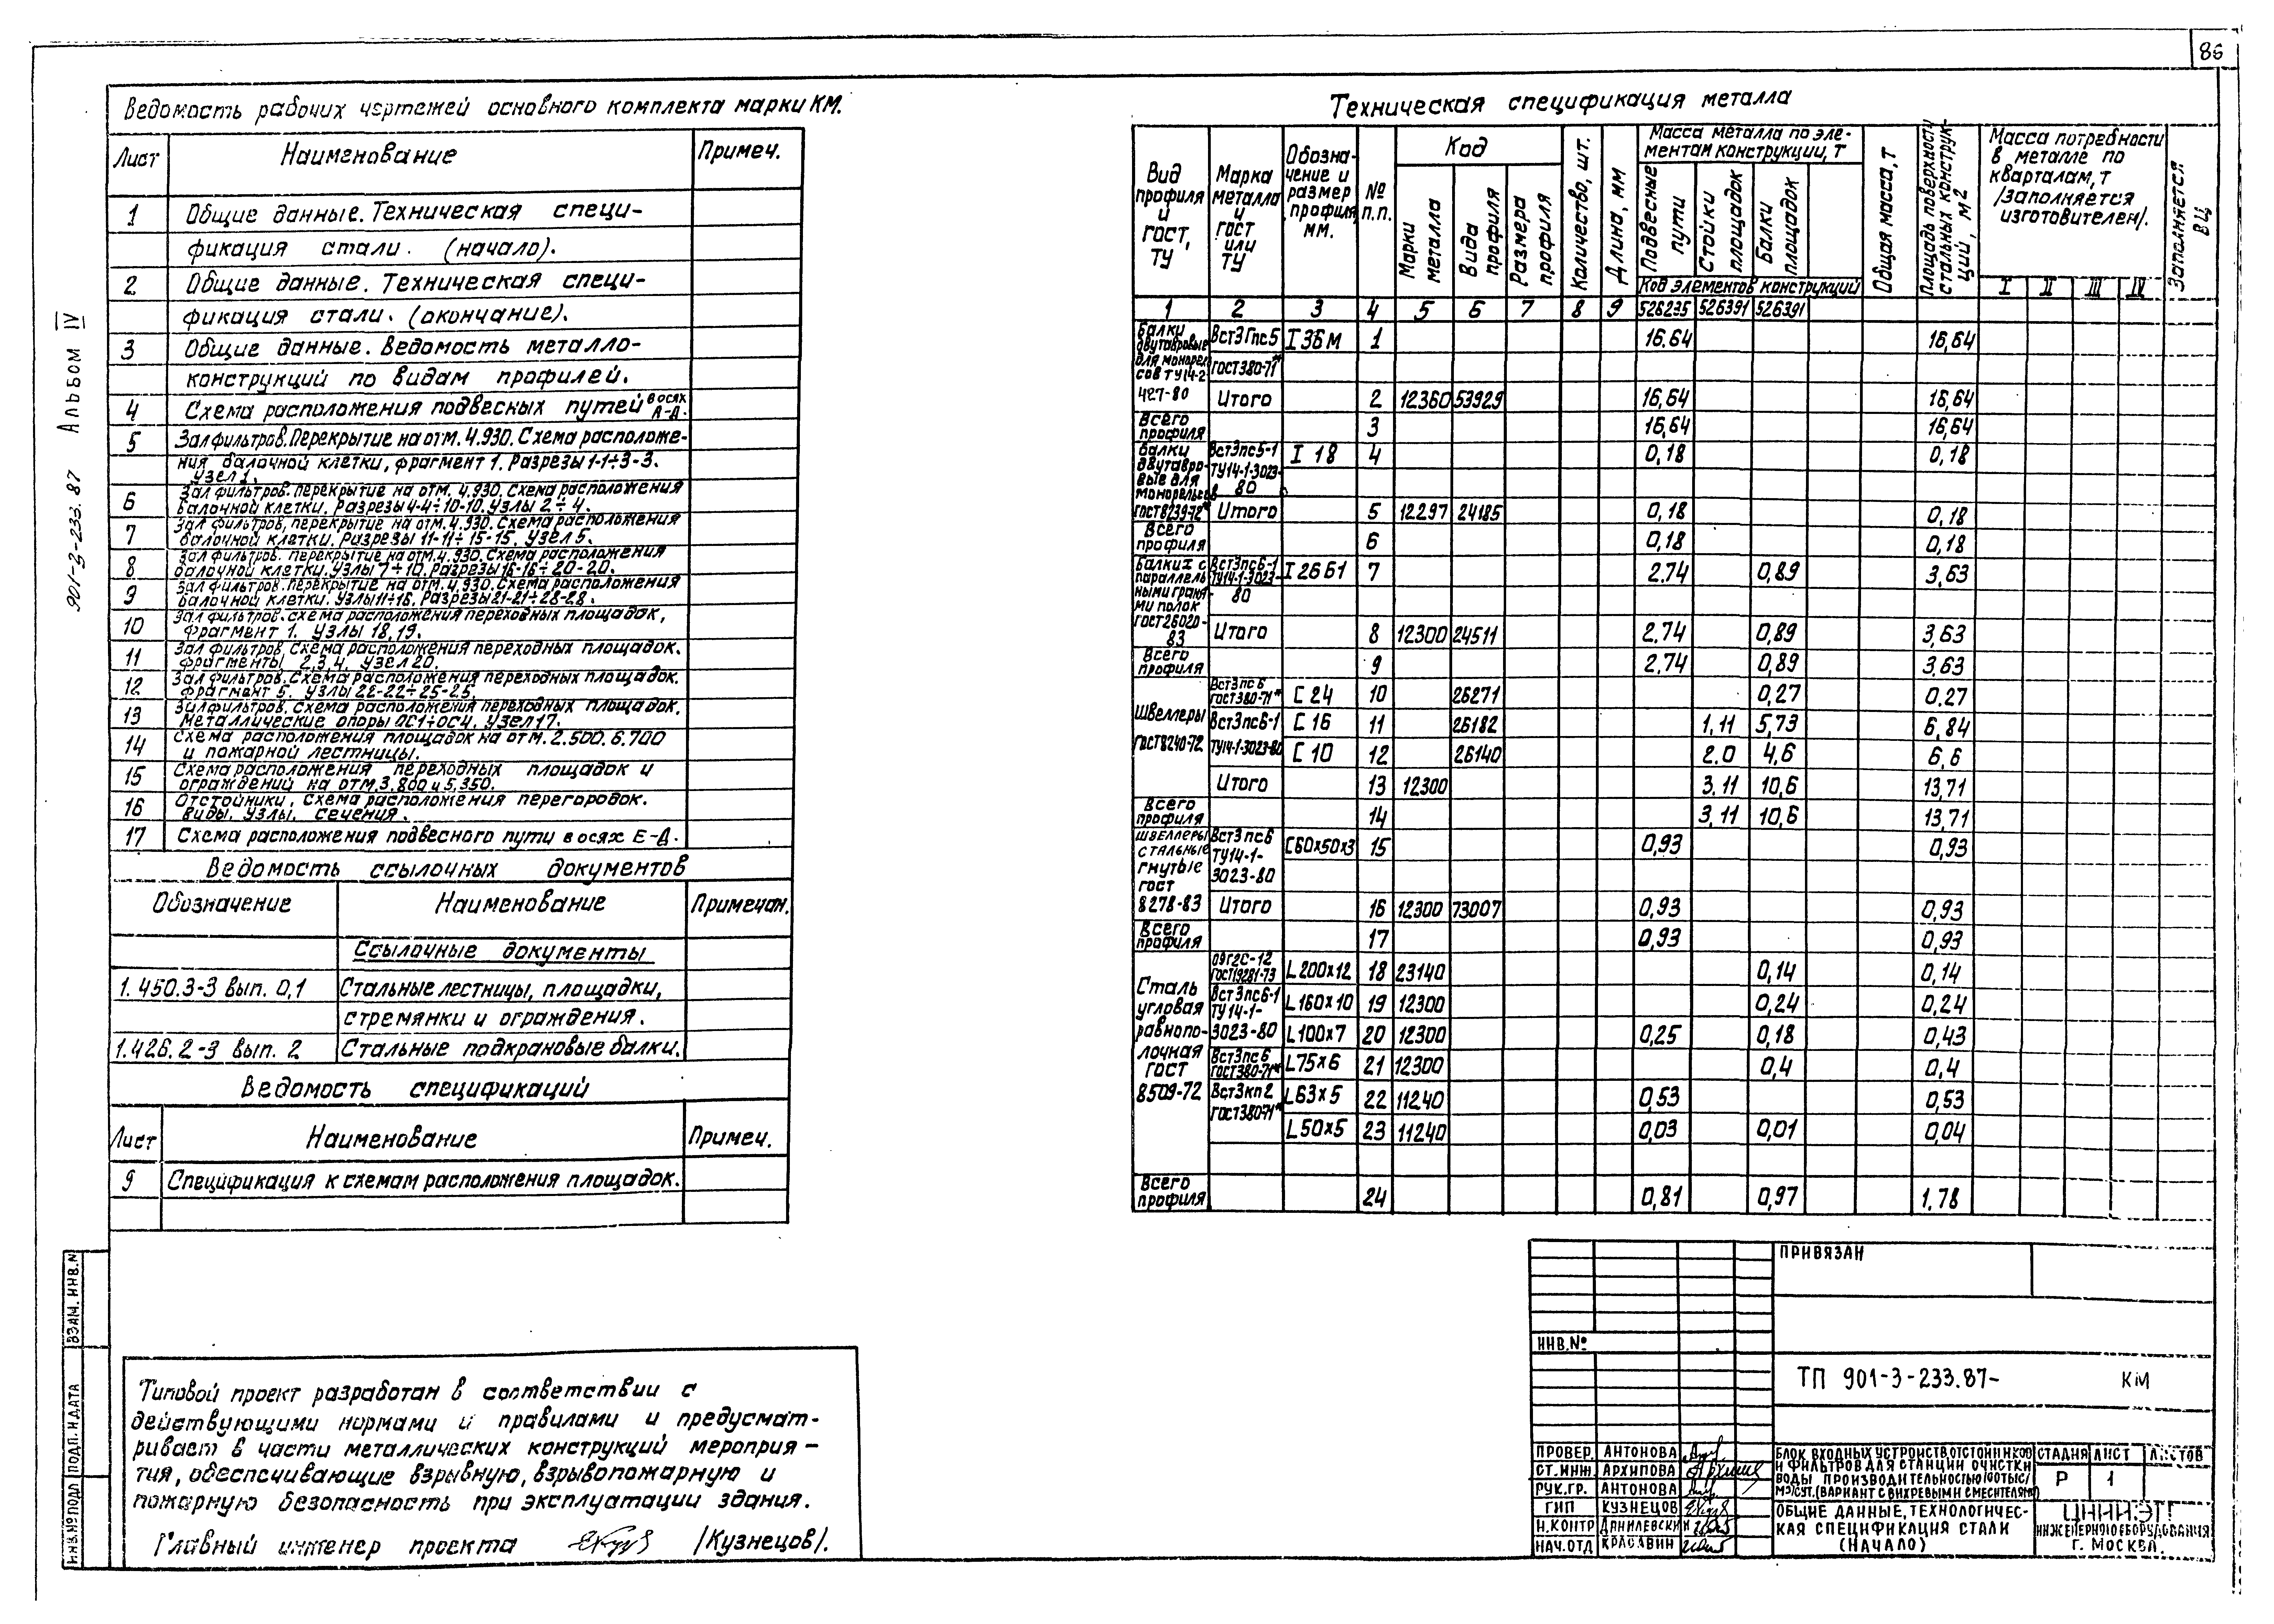 86
Ведомость рабочих чертежей основного комплекта марки КМ.
Лист Наименование Примеч.
1 Общие данные. Техническая специ-
фикация стали. (начало).
2 Общие данные. Техническая специ-
фикация стали. (окончание).
3 Общие данные. Ведомость металло-
конструкций по видам профилей.
4 Схема расположения подвесных путей в осях А-Д.
5 Зал фильтров. Перекрытие на отм. 4.930. Схема расположе-
ния балочной клетки, фрагмент 1. Разрезы 1-1÷3-3.
Узел 1.
6 Зал фильтров. перекрытие на отм. 4.930. Схема расположения
балочной клетки. Разрезы 4-4÷10-10. Узлы 2÷4.
7 Зал фильтров, перекрытие на отм. 4.930. Схема расположения
балочной клетки. Разрезы 11-11÷15-15. Узел 5.
8 Зал фильтров. перекрытие на отм. 4.930. Схема расположения
балочной клетки. Узлы 7÷10. Разрезы 16-16÷20-20.
9 Зал фильтров. перекрытие на отм. 4.930. Схема расположения
балочной клетки. Узлы 11÷16. Разрезы 21-21÷28-28.
10 Зал фильтров. схема расположения переходных площадок,
фрагмент 1. Узлы 18,19.
11 Зал фильтров. Схема расположения переходных площадок.
фрагменты 2,3,4. Узел 20.
12 Зал фильтров. Схема расположения переходных площадок.
фрагмент 5. Узлы 22-22÷25-25.
13 Зал фильтров. Схема расположения переходных площадок.
Металлические опоры ОС1÷ОС4. Узел 17.
14 Схема расположения площадок на отм. 2.500. 6.700
и пожарной лестницы.
15 Схема расположения переходных площадок и
ограждений на отм. 3.800 и 5,350.
16 Отстойники, схема расположения перегородок.
Виды. Узлы. Сечения.
17 Схема расположения подвесного пути в осях Е-Д.
Ведомость ссылочных документов
Обозначение Наименование Примечан.
Ссылочные документы
1.450.3-3 вып. 0,1 Стальные лестницы, площадки,
стремянки и ограждения.
1.426.2-3 вып. 2 Стальные подкрановые балки.
Ведомость спецификаций
Лист Наименование Примеч.
9 Спецификация к схемам расположения площадок.
Типовой проект разработан в соответствии с
действующими нормами и правилами и предусмат-
ривает в части металлических конструкций мероприя-
тия, обеспечивающие взрывную, взрывопожарную и
пожарную безопасность при эксплуатации здания.
Главный инженер проекта /Кузнецов/.
901-3-233.87 Альбом IV
Инв.№ подл Подп. и дата Взам. инв.№
Техническая спецификация металла
Вид профиля и ГОСТ, ТУ
Марка металла и ГОСТ или ТУ
Обозна-чение и размер профиля, мм.
№ п.п.
Код
Марки металла Вида профиля Размера профиля
Количество, шт.
Длина, мм
Масса металла по эле-ментам конструкции, т
Подвесные пути Стойки площадок Балки площадок
Код элементов конструкций
Общая масса, т
Площадь поверхности стальных конструк-ций, м2
Масса потребности в металле по кварталам, т /заполняется изготовителем/.
I II III IV
Заполняется ВЦ
1 2 3 4 5 6 7 8 9 526235 526391 526391
Балки двутавровые для монорельсов ТУ14-2-427-80
ВСт3Гпс5 ГОСТ380-71* I 36М 1 16.64 16,64
Итого 2 12360 53929 16,64 16,64
Всего профиля 3 16,64 16,64
Балки двутавро-вые для монорельсов ГОСТ8239-72*
ВСт3пс5-1 ТУ14-1-3023-80 I 18 4 0,18 0,18
Итого 5 12297 24185 0,18 0,18
Всего профиля 6 0,18 0,18
Балки I с параллель-ными граня-ми полок ГОСТ26020-83
ВСт3пс6-1 ТУ14-1-3023-80 I 26Б1 7 2.74 0,89 3,63
Итого 8 12300 24511 2.74 0,89 3,63
Всего профиля 9 2.74 0,89 3,63
Швеллеры ГОСТ8240-72
ВСт3пс6 ГОСТ380-71* С 24 10 26271 0,27 0.27
ВСт3пс6-1 С 16 11 26182 1,11 5,73 6,84
ТУ14-1-3023-80 С 10 12 26140 2.0 4,6 6,6
Итого 13 12300 3,11 10,6 13,71
Всего профиля 14 3,11 10,6 13,71
Швеллеры стальные гнутые ГОСТ 8278-83
ВСт3пс6 ТУ14-1-3023-80 С60х50х3 15 0,93 0,93
Итого 16 12300 73007 0,93 0,93
Всего профиля 17 0,93 0,93
Сталь угловая равнопо-лочная ГОСТ 8509-72
09Г2С-12 ГОСТ19281-73 L200х12 18 23140 0,14 0,14
ВСт3пс6-1 ТУ14-1- L160х10 19 12300 0,24 0,24
3023-80 L100х7 20 12300 0,25 0,18 0,43
ВСт3пс6 ГОСТ380-71* L75х6 21 12300 0,4 0,4
ВСт3кп2 ГОСТ380-71* L63х5 22 11240 0,53 0,53
L50х5 23 11240 0,03 0,01 0,04
Всего профиля 24 0,81 0,97 1.78
Привязан
Инв.№
ТП 901-3-233.87- КМ
Провер. Антонова
Ст.инж. Архипова
Рук.гр. Антонова
ГИП Кузнецов
Н.контр Данилевский
Нач.отд Красавин
Блок входных устройств, отстойников
и фильтров для станции очистки
воды производительностью 100 тыс/
м3/сут. (вариант с вихревыми смесителями)
Стадия Лист Листов
Р 1
Общие данные, технологичес-
кая спецификация стали
(начало)
ЦНИИЭП
инженерного оборудования
г. Москва.